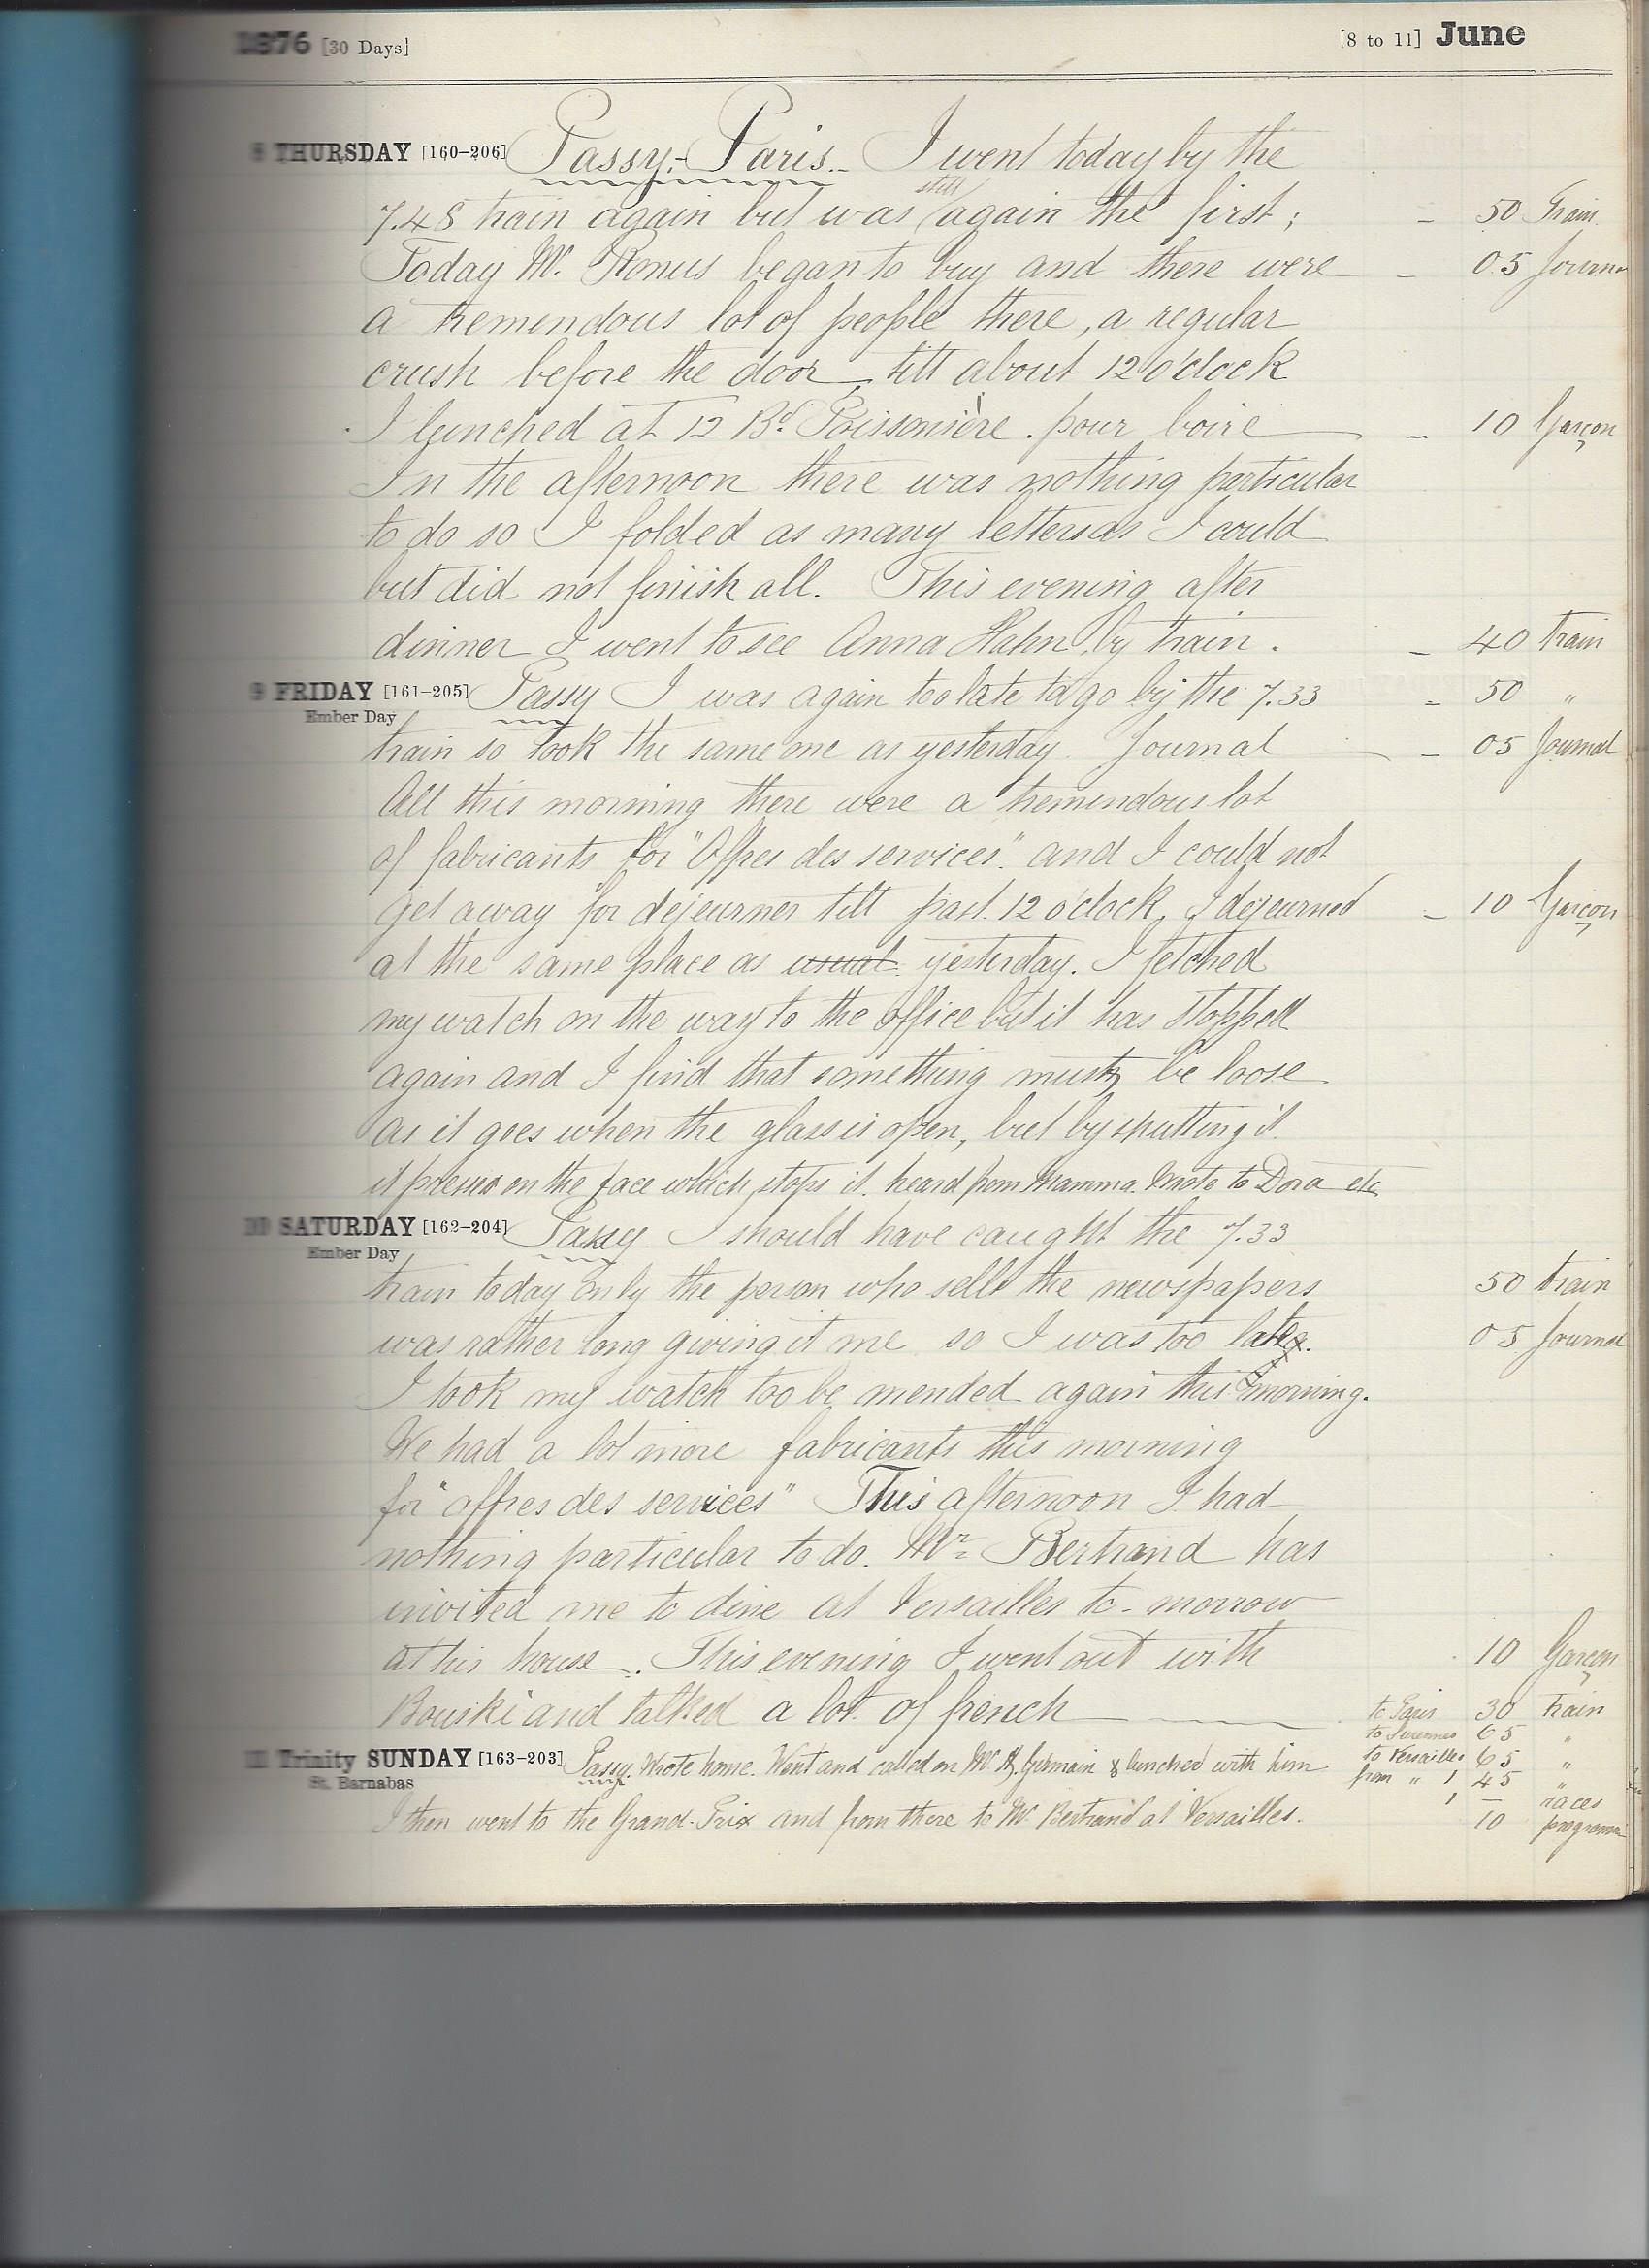 1876 [30 Days] [8 to 11] June
8 THURSDAY [160–206] Passy.- Paris.- I went today by the
7.48 train again but was still again the first; – 50 Train
Today Mr. Ronus began to buy and there were – 05 Journ
a tremendous lot of people there, a regular
crush before the door, till about 12 o'clock
I lunched at 12 Bd. Poissonière. pour boire – 10 Garçon
In the afternoon there was nothing particular
to do so I folded as many letters as I could
but did not finish all. This evening after
dinner I went to see Anna Hahn by train. – 40 train
9 FRIDAY [161–205] Passy I was again too late to go by the 7.33 = 50 "
Ember Day
train so took the same one as yesterday. Journal – 05 Journal
All this morning there were a tremendous lot
of fabricants for "Offres des services" and I could not
get away for dejeurner till past 12 o'clock, I dejeurned – 10 Garçon
at the same place as usual yesterday. I fetched
my watch on the way to the office but it has stopped
again and I find that something must be loose
as it goes when the glass is open, but by shutting it
it presses on the face which stops it. heard from Mamma. Wrote to Dora etc
10 SATURDAY [162–204] Passy. I should have caught the 7.33
Ember Day
train today only the person who sells the newspapers 50 train
was rather long giving it me so I was too late. 05 Journal
I took my watch too be mended again this morning.
We had a lot more fabricants this morning
for "offres des services" This afternoon I had
nothing particular to do. Mr. Bertrand has
invited me to dine at Versailles to-morrow
at his house. This evening I went out with 10 Garçon
Bouski and talked a lot of french to Paris 30 train
to Suresnes 65 "
11 Trinity SUNDAY [163–203] Passy. Wrote home. Went and called on Mr. Germain & lunched with him to Versailles 65 "
St. Barnabas
from " 1 45 "
1 – races
I then went to the Grand-Prix and from there to Mr. Bertrand at Versailles. 10 program